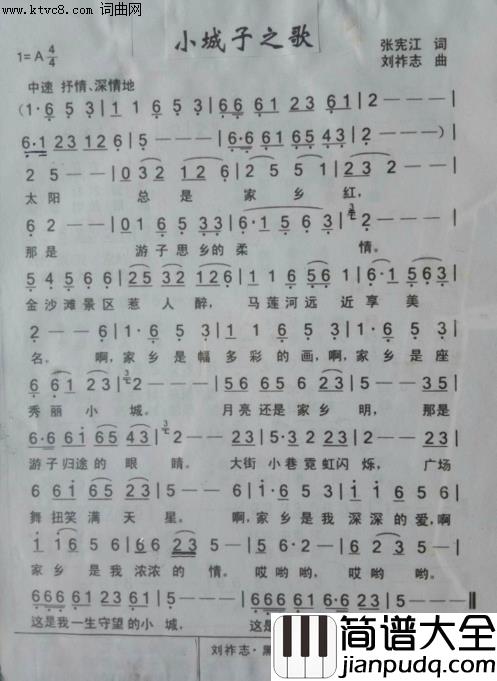 www.ktvc8.com 词曲网
小城子之歌
1=A 4/4
张宪江 词
刘祚志 曲
中速 抒情、深情地
(1·6 5 3 | 1 1 6 5 3 | 66 61 23 61 | 2 — — — |
6·1 23 12 6 | 5 — — — | 6·6 61 65 43 | 2 — — — ) |
2 5 — — | 03 2 12 6 | 2 5 5 1 | 2 3 2 — — |
太阳 总是家乡红,
6 2 — — | 01 65 33 | 6·1 53 | 2 — — — |
那是 游子思乡的柔情。
5 45 65 6 | 25 32 126 | 1 6 56 1 | 6·1 563 |
金沙滩景区惹人醉,马莲河远近享美
2 — — 6 | 1·6 5 3 | 1 1 6 5 3 | 1·6 5 3 |
名,啊,家乡是幅多彩的画,啊,家乡是座
6 61 23 | 2 — — — | 56 65 6 23 | 5 — — 35 |
秀丽小城。月亮还是家乡明,那是
6·6 61 65 43 | 2 — — — | 22 03 23 | 5·3 22 3 | 5 — — 23 |
游子归途的眼睛。大街小巷霓虹闪烁,广场
6 61 65 23 | 5 — — 6 | 1·6 5 3 | 1 1 6 5 3 5 |
舞扭笑满天星。啊,家乡是我深深的爱,啊
1 16 5 3 | 66 23 5 | 5 — — — | 5 6·2 — | 5 5 — — |
家乡是我浓浓的情。哎哟哟,哎哟哟
666 61 6 23 | 5 — — — | 666 61 6·1 23 | 5 — — — ‖
这是我一生守望的小城,这是
刘祚志·黑
简谱大全
jianpudq.com